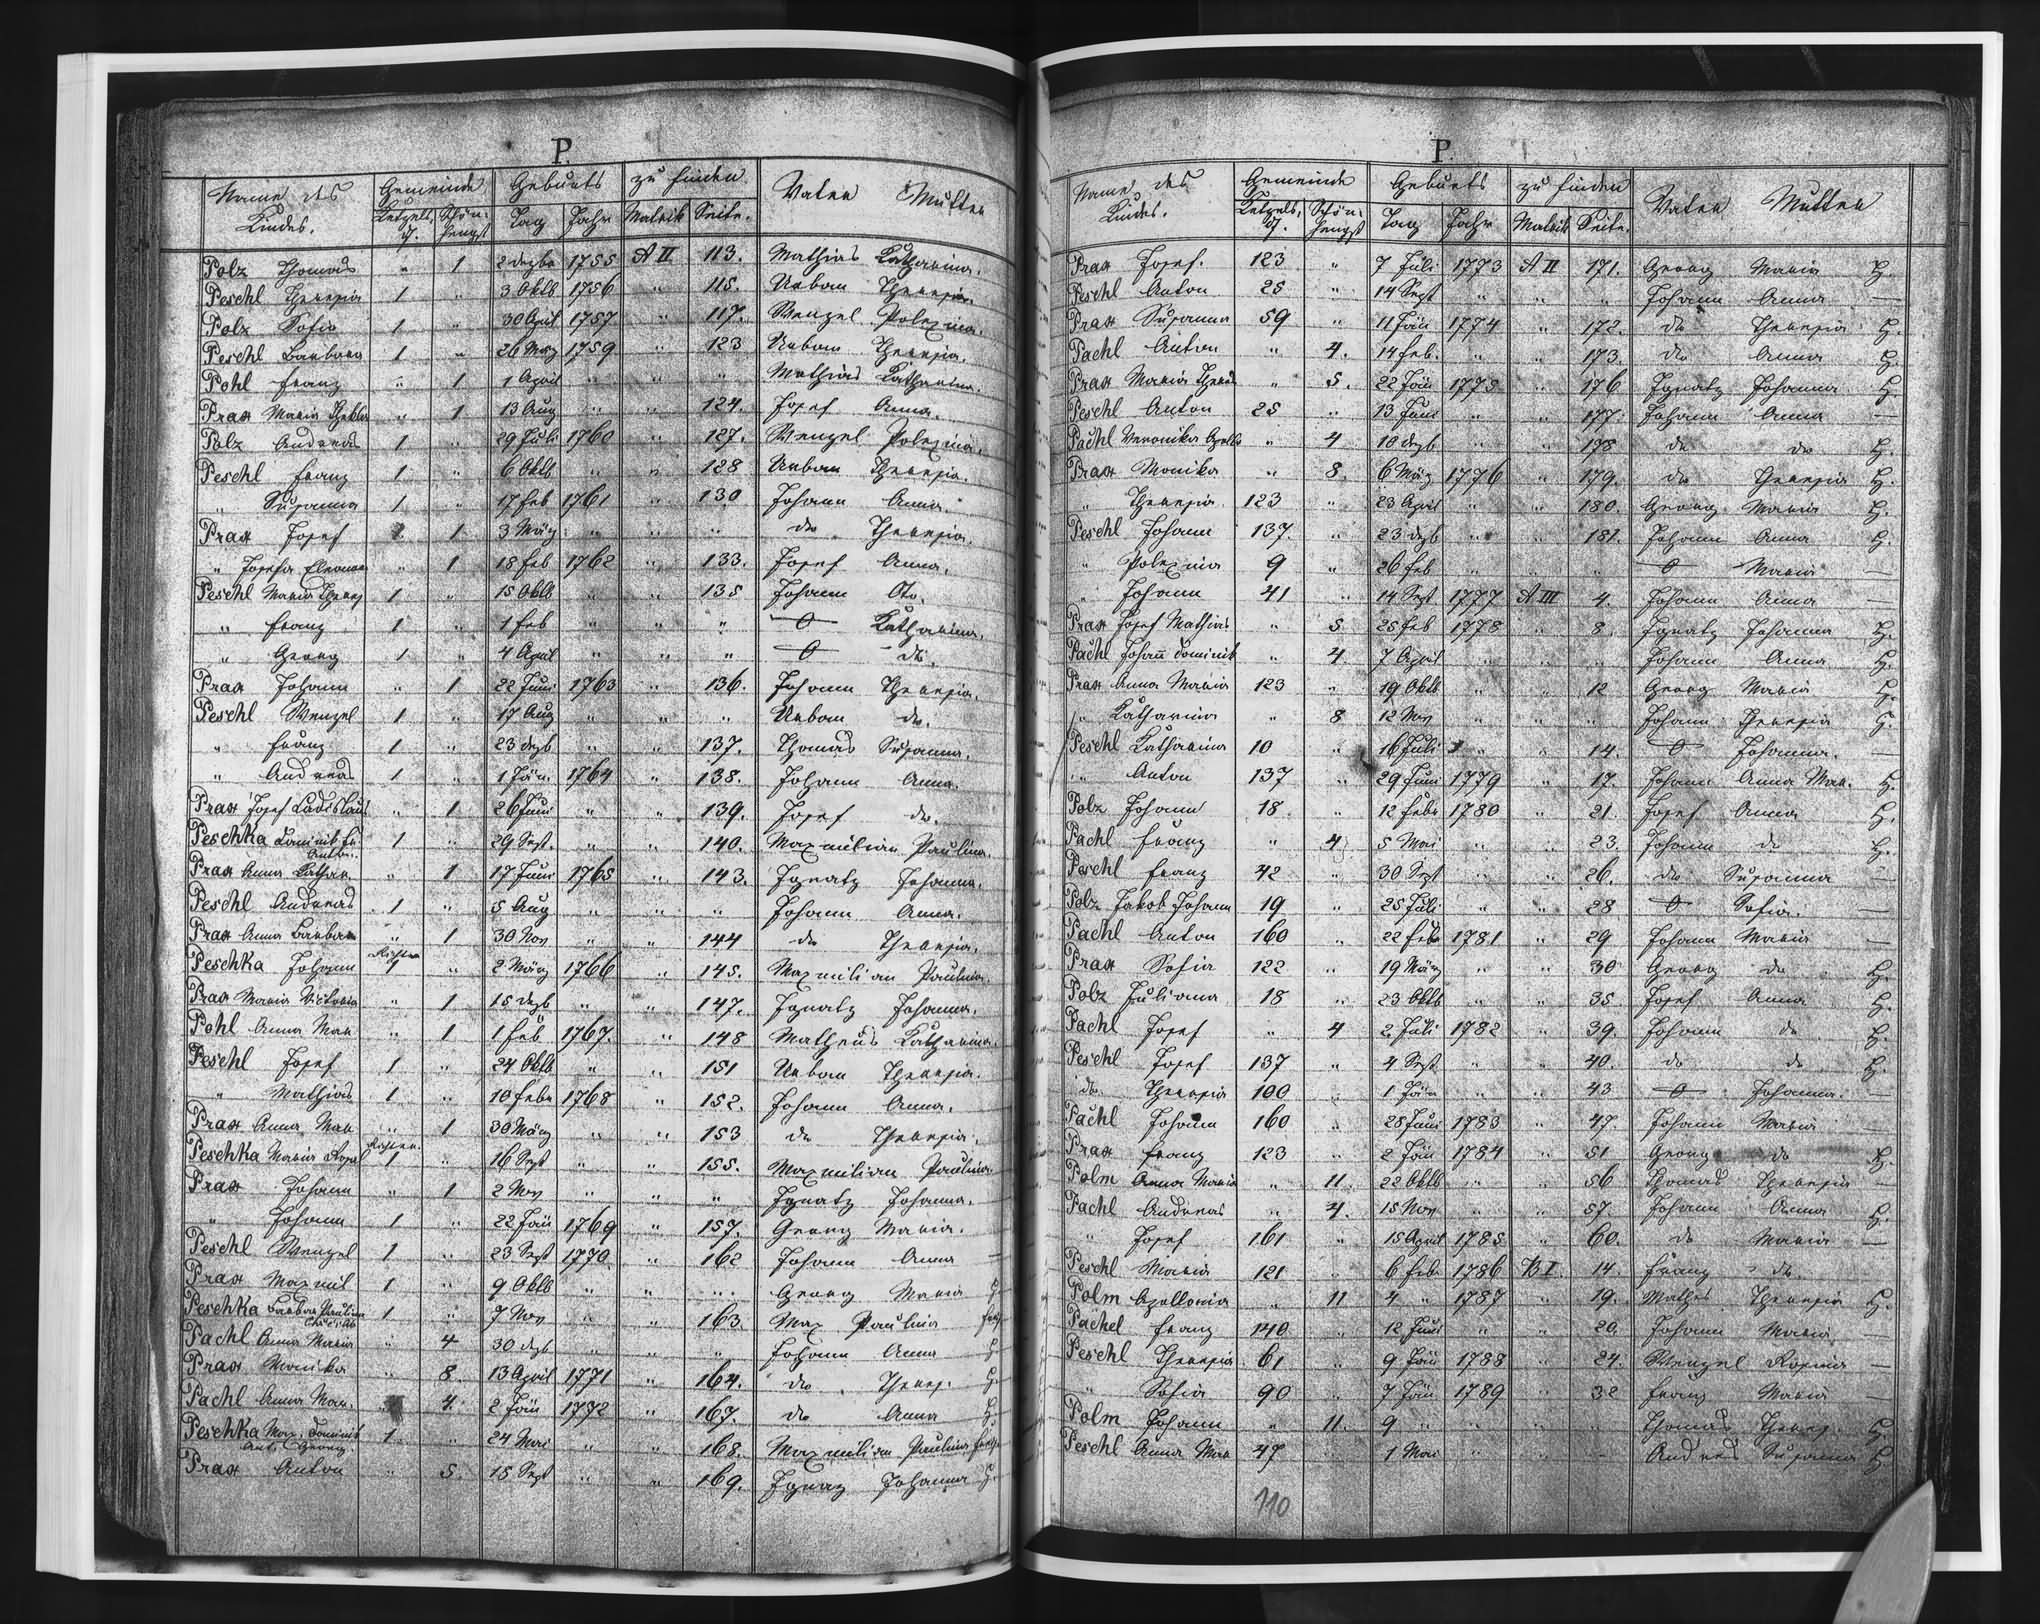 P.
Name des Kindes. Gemeinde Geburts zu finden Vater Mutter
Ketzelsd. Schönhengst Tag Jahr Matrik Seite.
Polz Thomas " 1 2 Dezbr 1755 A II 113. Mathias Katharina.
Peschl Theresia 1 " 3 Oktb 1756 " 115. Urban Theresia.
Polz Sofia 1 " 30 April 1757 " 117. Wenzel Polexina.
Peschl Barbara 1 " 26 März 1759 " 123 Urban Theresia.
Pohl Franz " 1 1 April " " " Mathias Katharina.
Prax Maria Thekla " 1 13 Aug " " 124. Josef Anna.
Polz Andreas 1 " 29 Juli 1760 " 127. Wenzel Polexina.
Peschl Franz 1 " 6 Oktb " " 128 Urban Theresia.
" Susanna 1 " 17 Feb 1761 " 130. Johann Anna
Prax Josef 1 3 März " " " do Theresia.
" Josefa Eleonora " 1 18 Feb 1762 " 133. Josef Anna.
Peschl Maria Theres 1 " 15 Oktb " " 135 Johann
" Franz 1 " 1 Feb " " " O Katharina.
" Georg 1 " 4 April " " " O do.
Prax Johann " 1 22 Juni 1763 " 136. Johann Theresia.
Peschl Wenzel 1 " 17 Aug " " " Urban do.
" Franz 1 " 23 Dezb " " 137. Thomas Susanna.
" Andreas 1 " 1 Jän. 1764 " 138. Johann Anna.
Prax Josef Ladislaus " 1 26 Juni " " 139. Josef do.
Peschka Dominik Fr. Anton. 1 " 29 Sept. " " 140. Maxmilian Paulina.
Prax Anna Kathar. " 1 17 Juni 1765 " 143. Ignatz Johanna.
Peschl Andreas 1 " 5 Aug " " " Johann Anna.
Prax Anna Barbara " 1 30 Nov " " 144 do Theresia.
Peschka Johann 1 " 2 März 1766 " 145. Maxmilian Paulina.
Prax Maria Victoria " 1 15 Dezb " " 147. Ignatz Johanna.
Pohl Anna Mar " 1 1 Feb 1767. " 148 Matheus Katharina.
Peschl Josef 1 " 24 Oktb " " 151 Urban Theresia.
" Mathias 1 " 10 Febr 1768 " 152. Johann Anna.
Prax Anna Mar " 1 30 März " " 153 do Theresia.
Peschka Maria Rosal 1 " 16 Sept " " 155. Maxmilian Paulina.
Prax Johann " 1 2 Nov " " " Ignatz Johanna.
" Johann 1 " 22 Jän 1769 " 157. Georg Maria.
Peschl Wenzel 1 " 23 Sept 1770 " 162 Johann Anna —
Prax Maxmil 1 " 9 Oktb " " " Georg Maria H.
Peschka Barbar Paulina 1 " 7 Nov " " 163. Max Paulina
Pachl Anna Maria " 4 30 Dezb " " " Johann Anna H.
Prax Monika " 8. 13 April 1771 " 164. do Theres. H.
Pachl Anna Mar. " 4. 2 Jän 1772 " 167. do Anna H.
Peschka Max. Dominik Ant. Georg. 1. " 24 Mai " " 168. Maxmilian Paulina
Prax Anton " 5. 15 Sept " " 169. Ignaz Johanna H.
P.
Name des Kindes. Gemeinde Geburts zu finden Vater Mutter
Ketzelsd. Schönhengst Tag Jahr Matrik Seite.
Prax Josef. 123 " 7 Juli 1773 A II 171. Georg Maria H.
Peschl Anton 25 " 14 Sept " " " Johann Anna —
Prax Susanna 59 " 11 Jän 1774 " 172. do Theresia H.
Pachl Anton " 4. 14 Feb. " " 173. do Anna H.
Prax Maria Theres " 5. 22 Jän 1775 " 176 Ignatz Johanna H.
Peschl Anton 25 " 13 Juni " " 177. Johann Anna —
Pachl Veronika Apollo " 4 10 Dezb " " 178 do do H.
Prax Monika " 8. 6 März 1776 " 179. do Theresia H.
" Theresia 123 " 23 April " " 180. Georg Maria H.
Peschl Johann 137. " 23 Dezb " " 181. Johann Anna H.
" Polexina 9 " 26 Feb " " O Maria —
" Johann 41 " 14 Sept 1777 A III 4. Johann Anna —
Prax Josef Mathias " 5 25 Feb 1778 " 8. Ignatz Johanna H.
Pachl Johann Dominik " 4. 7 April " " " Johann Anna H.
Prax Anna Maria 123 " 19 Oktb " " 12 Georg Maria H.
" Katharina " 8 12 Nov " " " Johann Theresia H.
Peschl Katharina 10 " 16 Juli " " 14. O Johanna. —
" Anton 137 " 29 Juni 1779 " 17. Johann Anna Mar. H.
Polz Johann 18. " 12 Febr 1780 " 21. Josef Anna H.
Pachl Franz " 4 5 Mai " " 23. Johann do H.
Peschl Franz 42 " 30 Sept " " 26. do Susanna —
Polz Jakob Johann 19 " 25 Juli " " 28 O Sofia. —
Pachl Anton 160 " 22 Febr 1781 " 29 Johann Maria —
Prax Sofia 122 " 19 März " " 30 Georg do H.
Polz Juliana 18 " 23 Oktb " " 35 Josef Anna H.
Pachl Josef " 4 2 Juli 1782 " 39. Johann do H.
Peschl Josef 137 " 4 Sept " " 40. do do H.
do Theresia 100 " 1 Jän " " 43 O Johanna. —
Pachl Johann 160 " 28 Juni 1783 " 47. Johann Maria —
Prax Franz 123 " 2 Jän 1784 " 51 Georg do H.
Polm Anna Maria " 11. 22 Oktb " " 56 Thomas Theresia —
Pachl Andreas " 4. 15 Nov " " 57. Johann Anna H.
" Josef 161 " 15 April 1785 " 60. do Maria —
Peschl Maria 121 " 6 Feb 1786 B I. 14. Franz do.
Polm Apollonia " 11 4 " 1787 " 19. Mathes Theresia H.
Pachel Franz 140 " 12 Juni " " 20. Johann Maria
Peschl Theresia 61 " 9 Jän 1788 " 24. Wenzel Rosina —
" Sofia 90 " 7 Jän 1789 " 32 Franz Maria
Polm Johann " 11. 9 " " " " Thomas Theres. H.
Peschl Anna Mar 47 " 1 Mai " " " Andreas Susanna H.
110